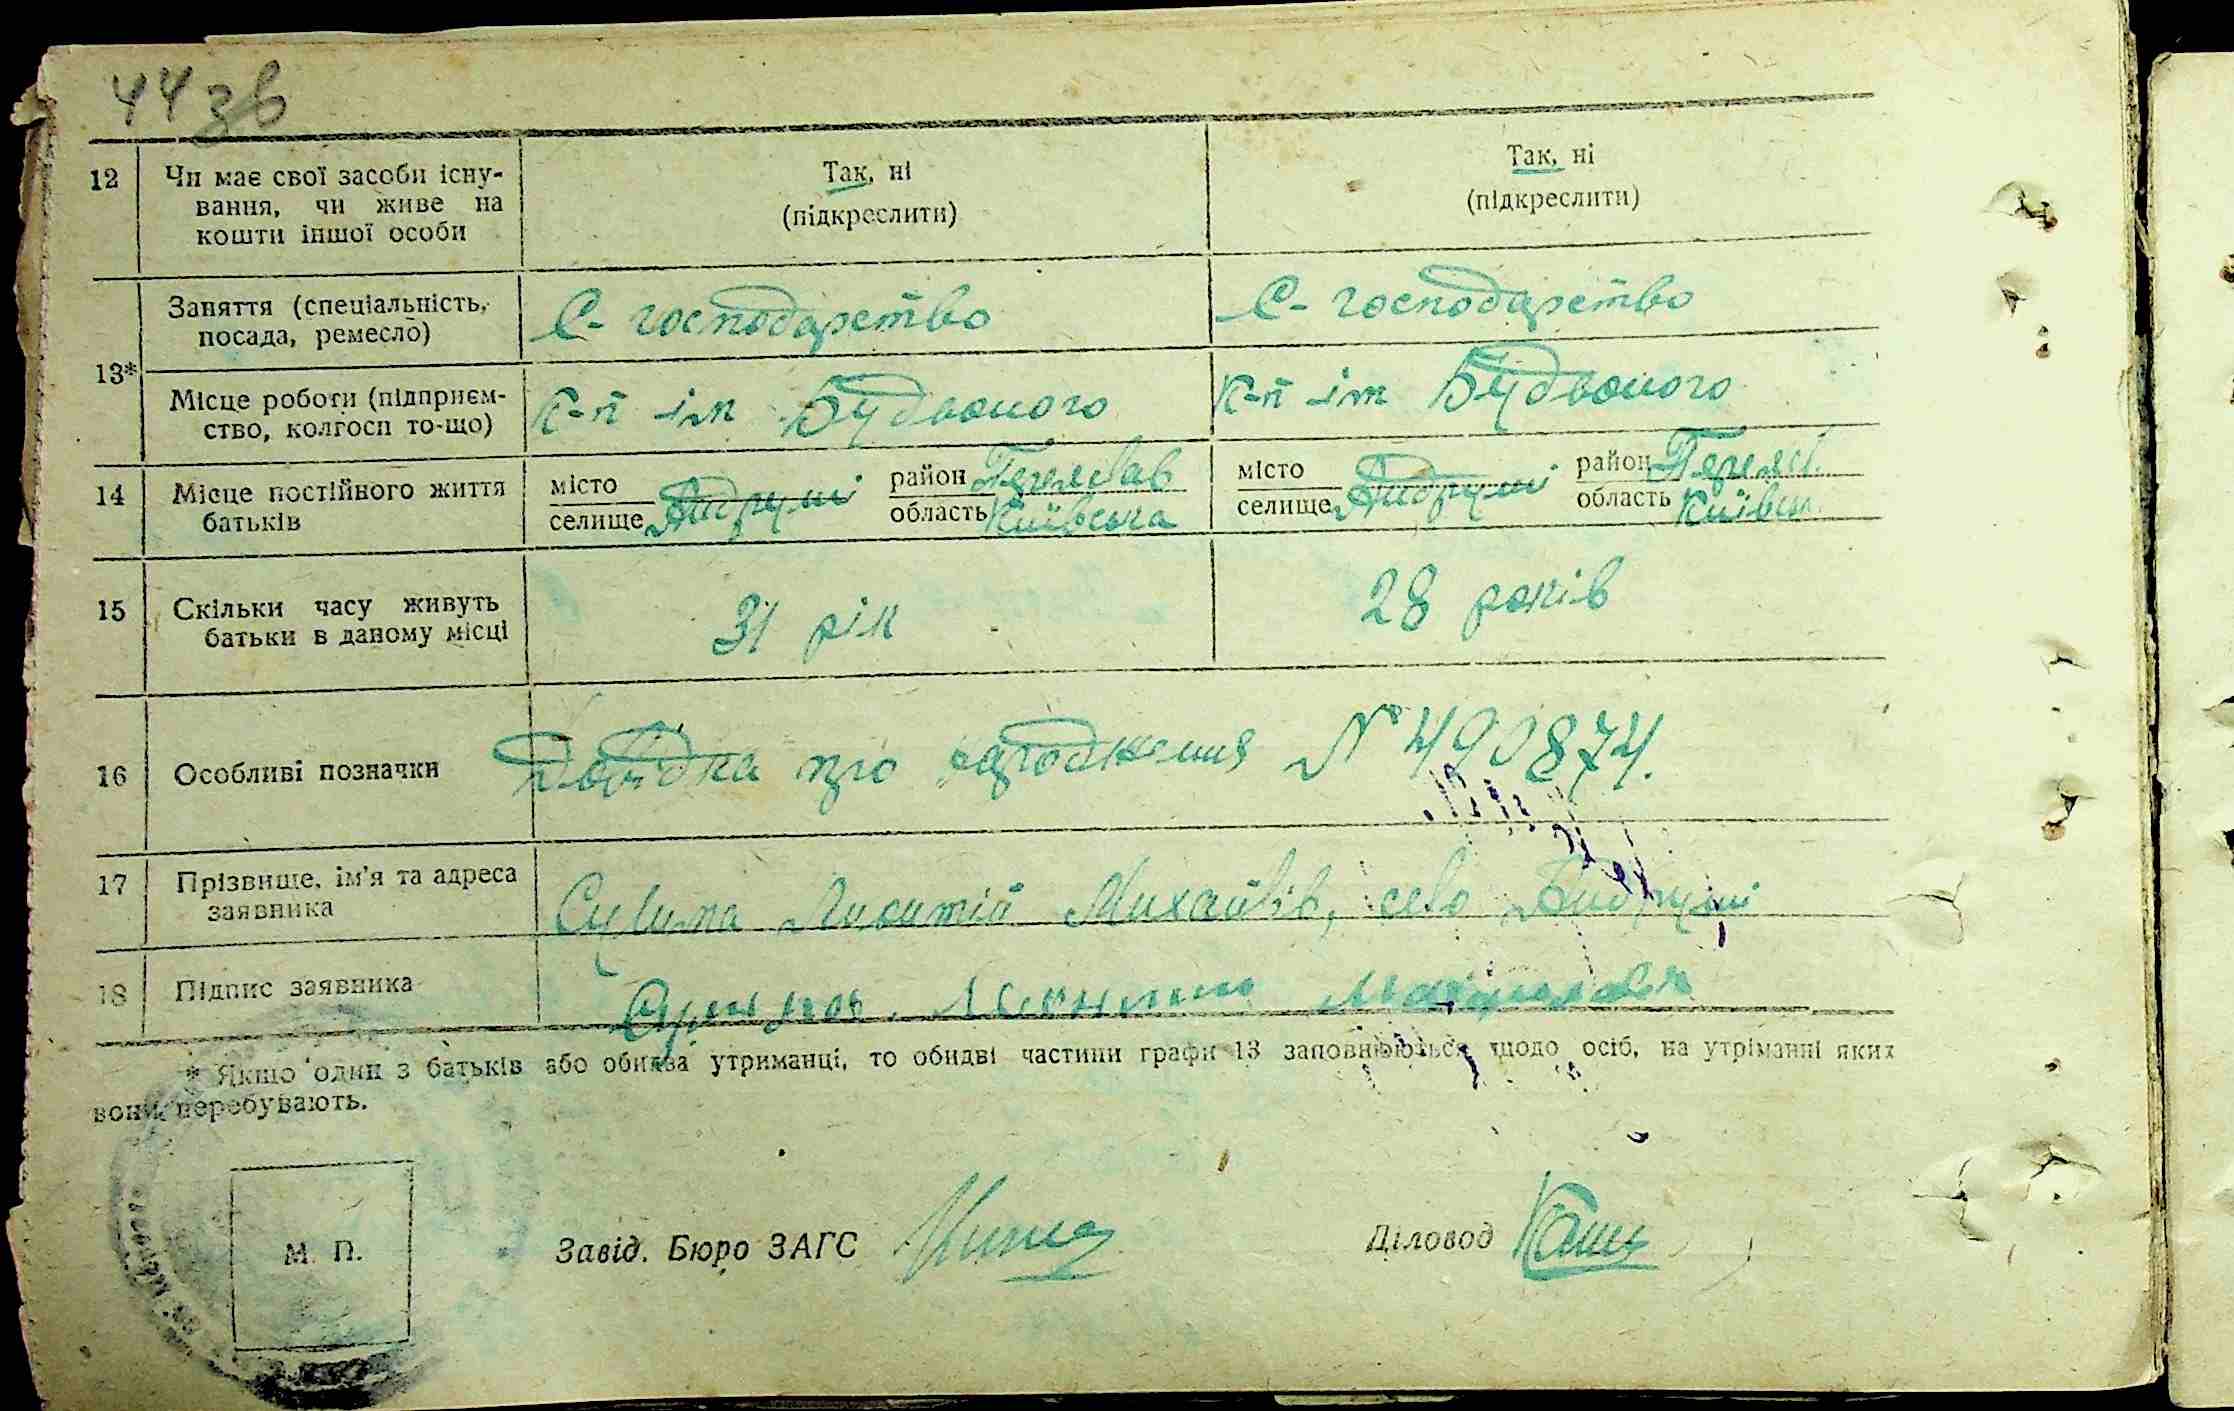 44 зв
12 Чи має свої засоби існу- Так, ні Так, ні
вання, чи живе на (підкреслити) (підкреслити)
кошти іншої особи
Заняття (спеціальність, С-господарство С-господарство
посада, ремесло)
13*
Місце роботи (підприєм- К-п ім Будьоного К-п ім Будьоного
ство, колгосп то-що)
14 Місце постійного життя місто район Переяслав місто район Переясл.
батьків селище Андруші область Київська селище Андруші область Київськ.
15 Скільки часу живуть 31 рік 28 років
батьки в даному місці
16 Особливі позначки Довідка про народження № 490874.
17 Прізвище, ім'я та адреса Сулима Михайлів, село Андруші
заявника
18 Підпис заявника
* Якщо один з батьків або обидва утриманці, то обидві частини графи 13 заповнюються щодо осіб, на утріманні яких
вони перебувають.
М. П. Завід. Бюро ЗАГС Діловод